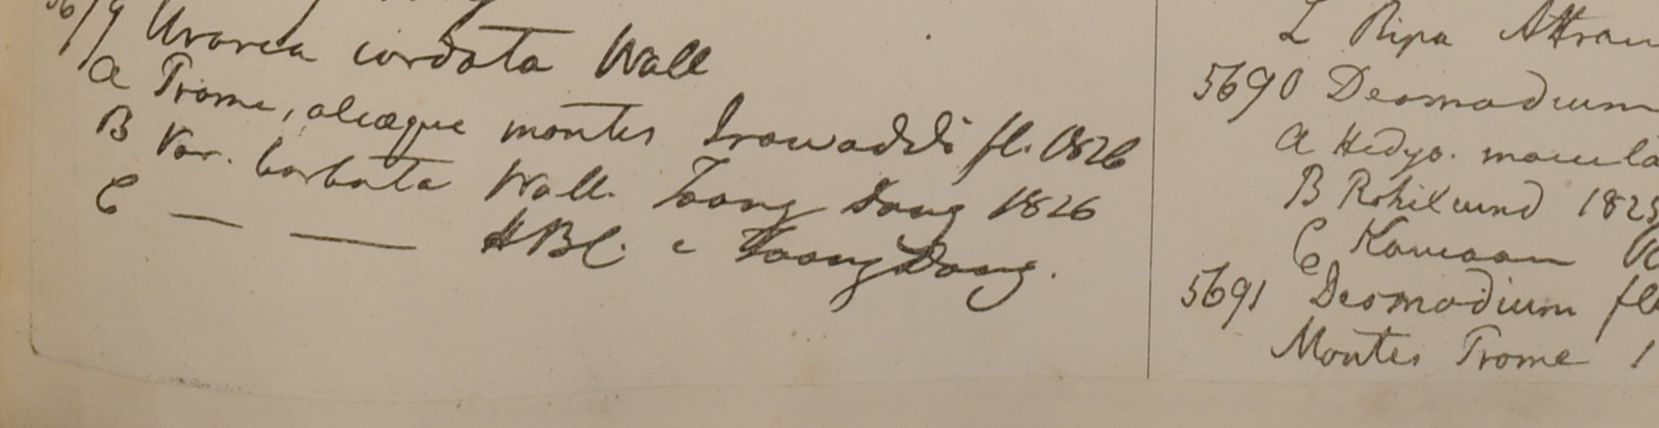 Uraria cordata Wall
a Prome, aliæque montes Irawaddi fl. 1826
B Var. barbata Wall. Toong Dong 1826
C — — HBC. e Toong Dong.
L Ripa Attran
5690 Desmodium
a Hedys. macula
B Rohilcund 1825
C Kamaon
5691 Desmodium fl
Montes Prome 1